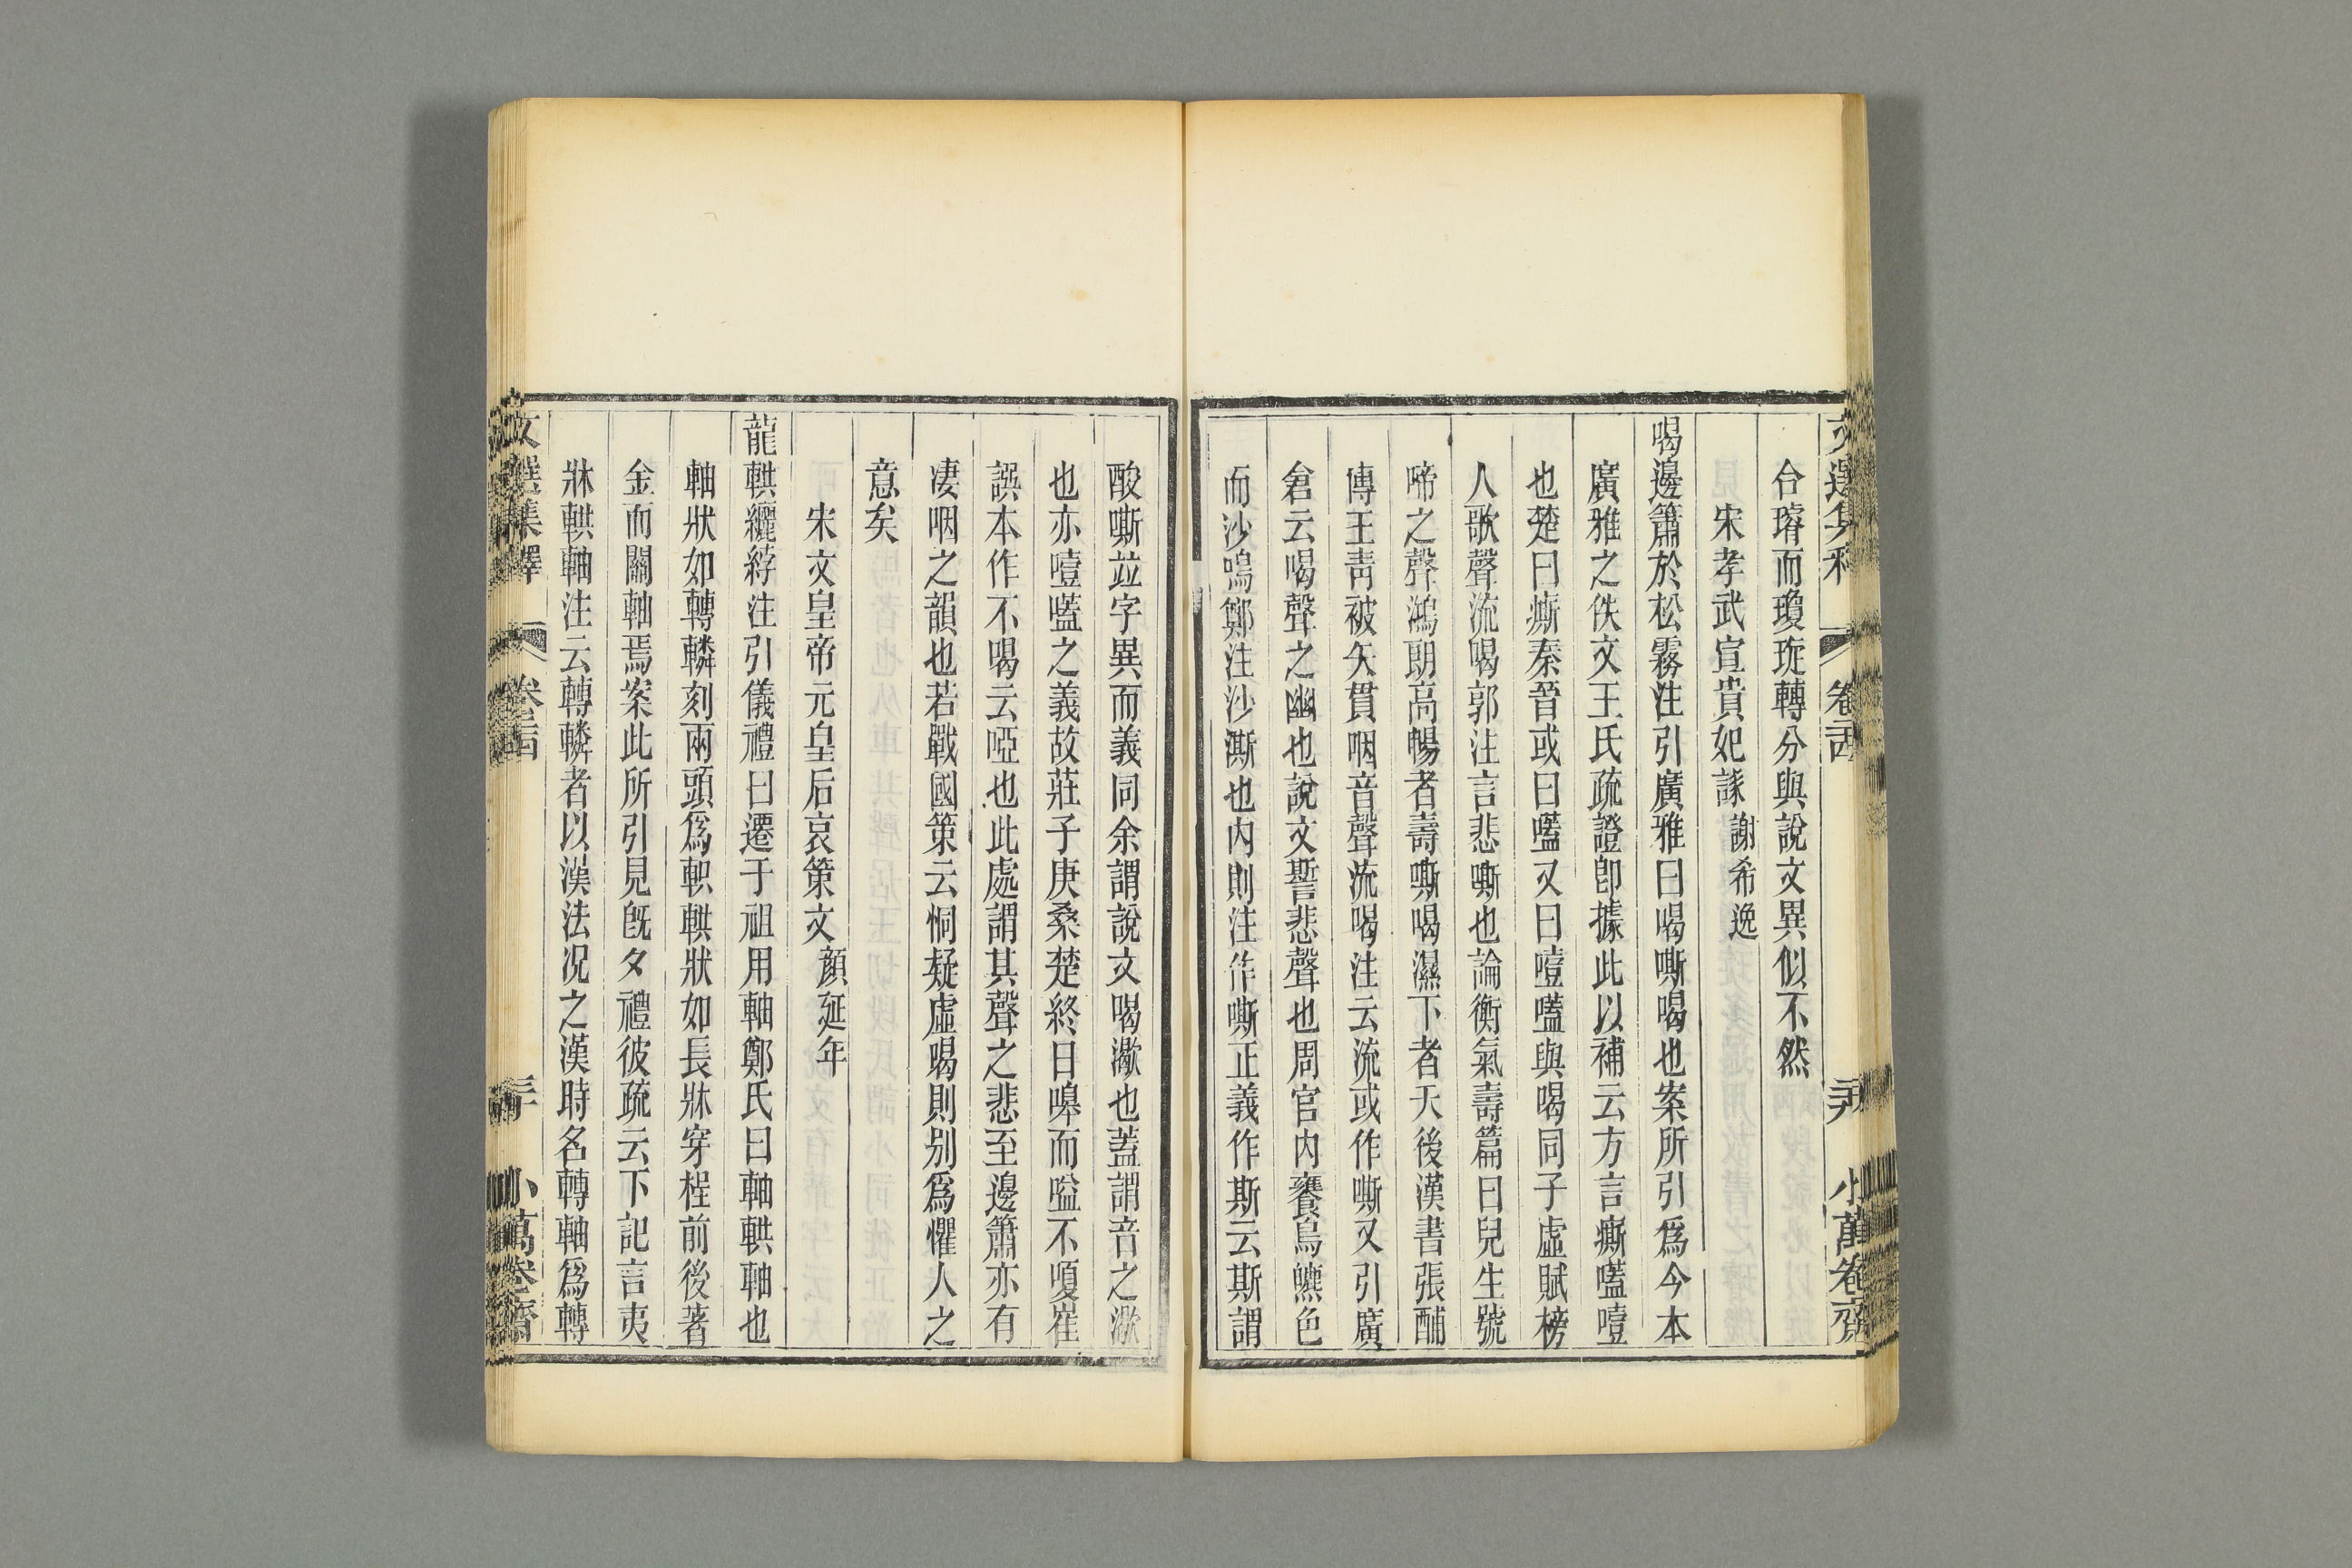 文選集釋 卷二十四 小萬卷齋
合璿而瓊琁轉分與說文異似不然
宋孝武宣貴妃誄謝希逸
喝邊簫於松霧注引廣雅曰喝嘶喝也案所引爲今本
廣雅之佚文王氏疏證卽據此以補云方言㾷嗌噎
也楚曰㾷秦晉或曰嗌又曰噎嗌與喝同子虛賦榜
人歌聲流喝郭注言悲嘶也論衡氣壽篇曰兒生號
啼之聲鴻朗高暢者壽嘶喝濕下者夭後漢書張酺
傳王靑被矢貫咽音聲流喝注云流或作嘶又引廣
倉云喝聲之幽也說文㽄悲聲也周官內饔鳥皫色
而沙鳴鄭注沙澌也內則注作嘶正義作斯云斯謂
酸嘶竝字異而義同余謂說文喝㵣也蓋謂音之㵣
也亦噎嗌之義故莊子庚桑楚終日嘷而嗌不嗄崔
譔本作不喝云啞也此處謂其聲之悲至邊簫亦有
凄咽之韻也若戰國策云恫疑虛喝則別爲懼人之
意矣
宋文皇帝元皇后哀策文顔延年
龍輁纚綍注引儀禮曰遷于祖用軸鄭氏曰軸輁軸也
軸狀如轉轔刻兩頭爲軹輁狀如長牀穿桯前後著
金而關軸焉案此所引見旣夕禮彼疏云下記言夷
牀輁軸注云轉轔者以漢法况之漢時名轉軸爲轉
文選集釋 卷二十四 三十 小萬卷齋